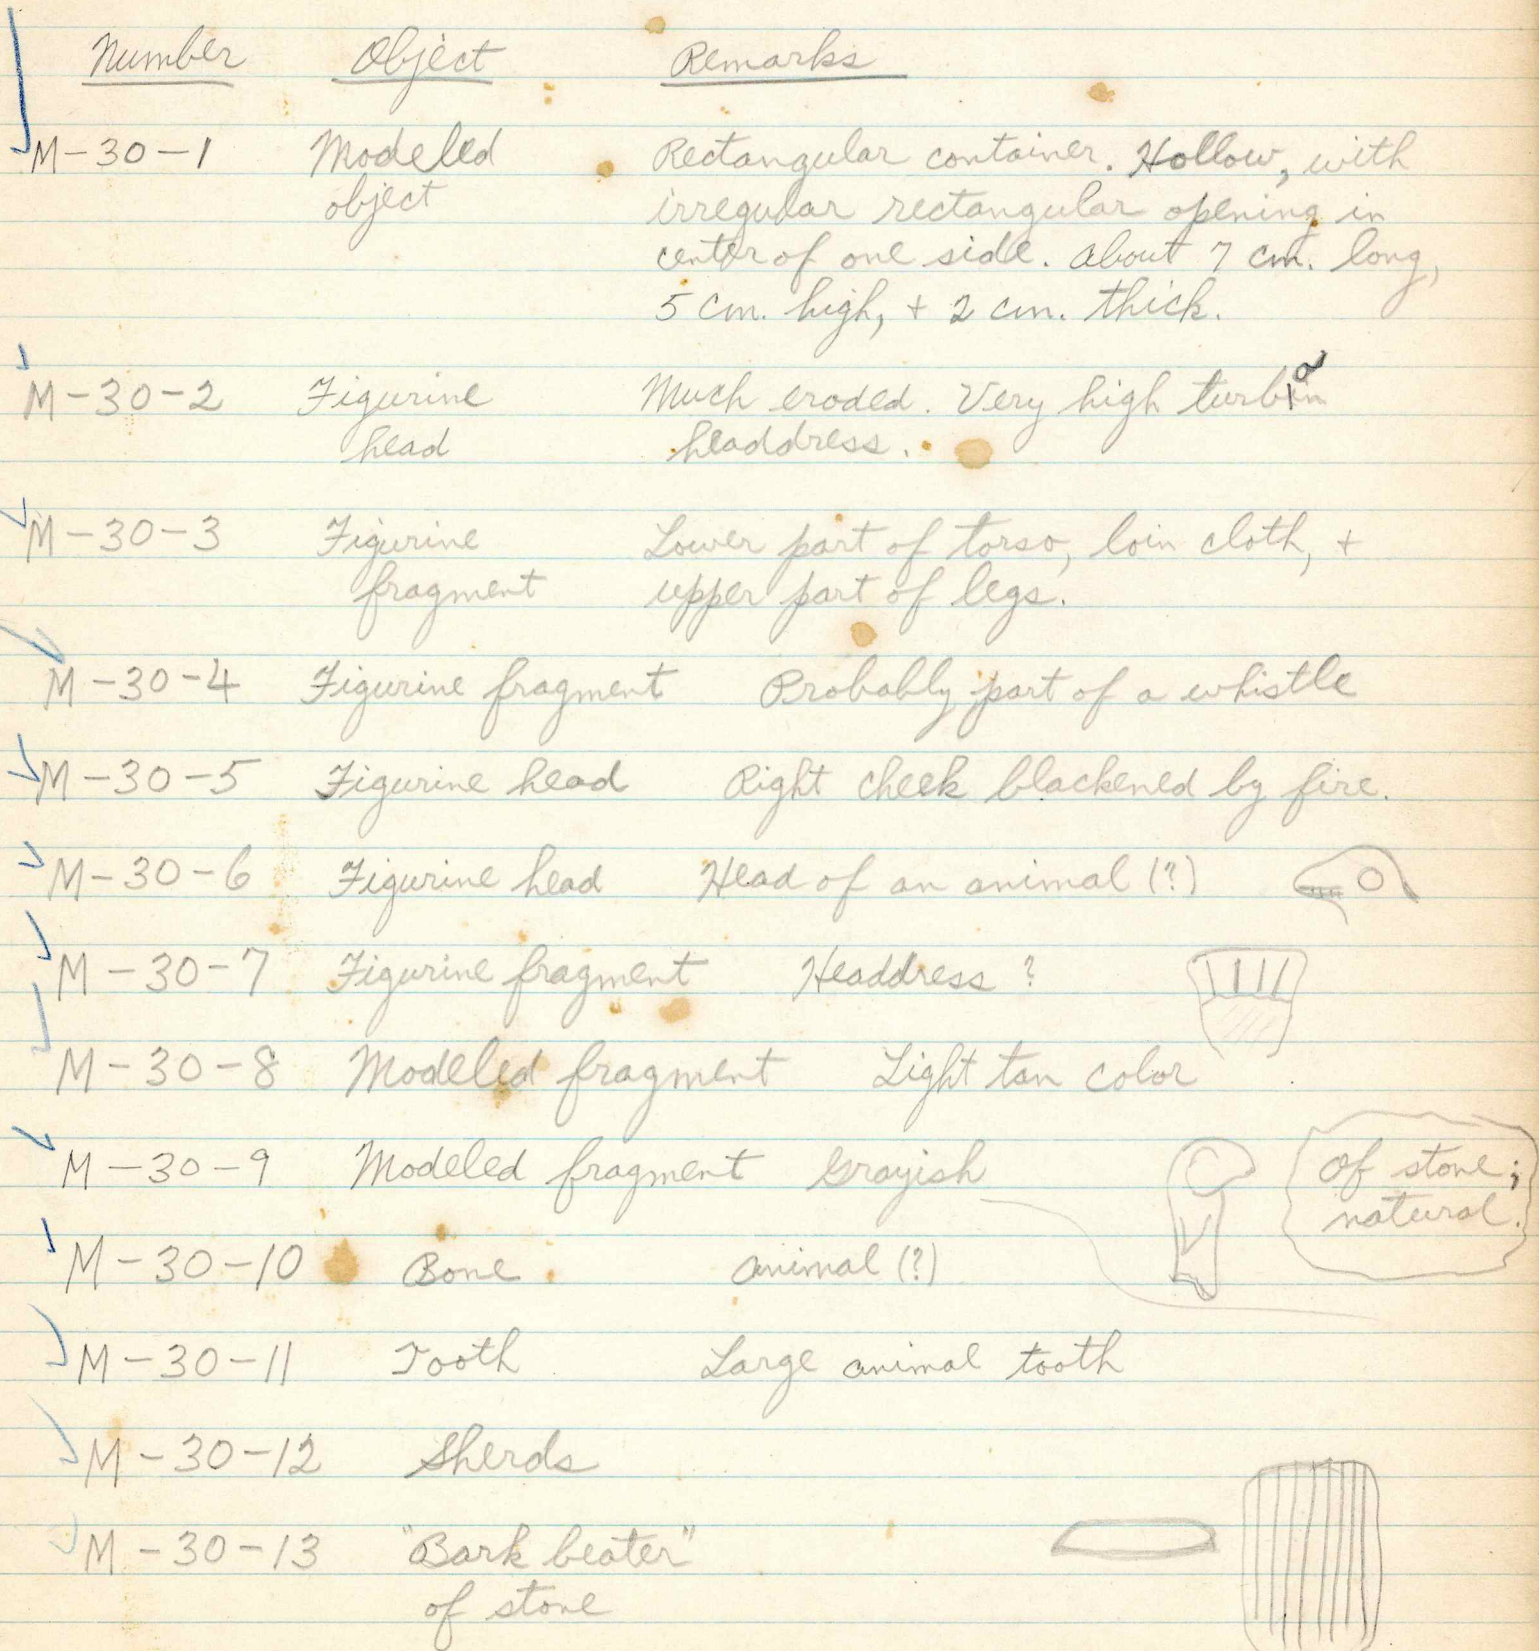 Number Object Remarks
M-30-1 Modeled Rectangular container. Hollow, with
object irregular rectangular opening in
center of one side. About 7 cm. long,
5 cm. high, + 2 cm. thick.
M-30-2 Figurine Much eroded. Very high turban
head headdress.
M-30-3 Figurine Lower part of torso, loin cloth, +
fragment upper part of legs.
M-30-4 Figurine fragment Probably part of a whistle
M-30-5 Figurine head Right cheek blackened by fire.
M-30-6 Figurine head Head of an animal (?)
M-30-7 Figurine fragment Headdress ?
M-30-8 Modeled fragment Light tan color
M-30-9 Modeled fragment Grayish Of stone;
natural.
M-30-10 Bone Animal (?)
M-30-11 Tooth Large animal tooth
M-30-12 Sherds
M-30-13 "Bark beater"
of stone